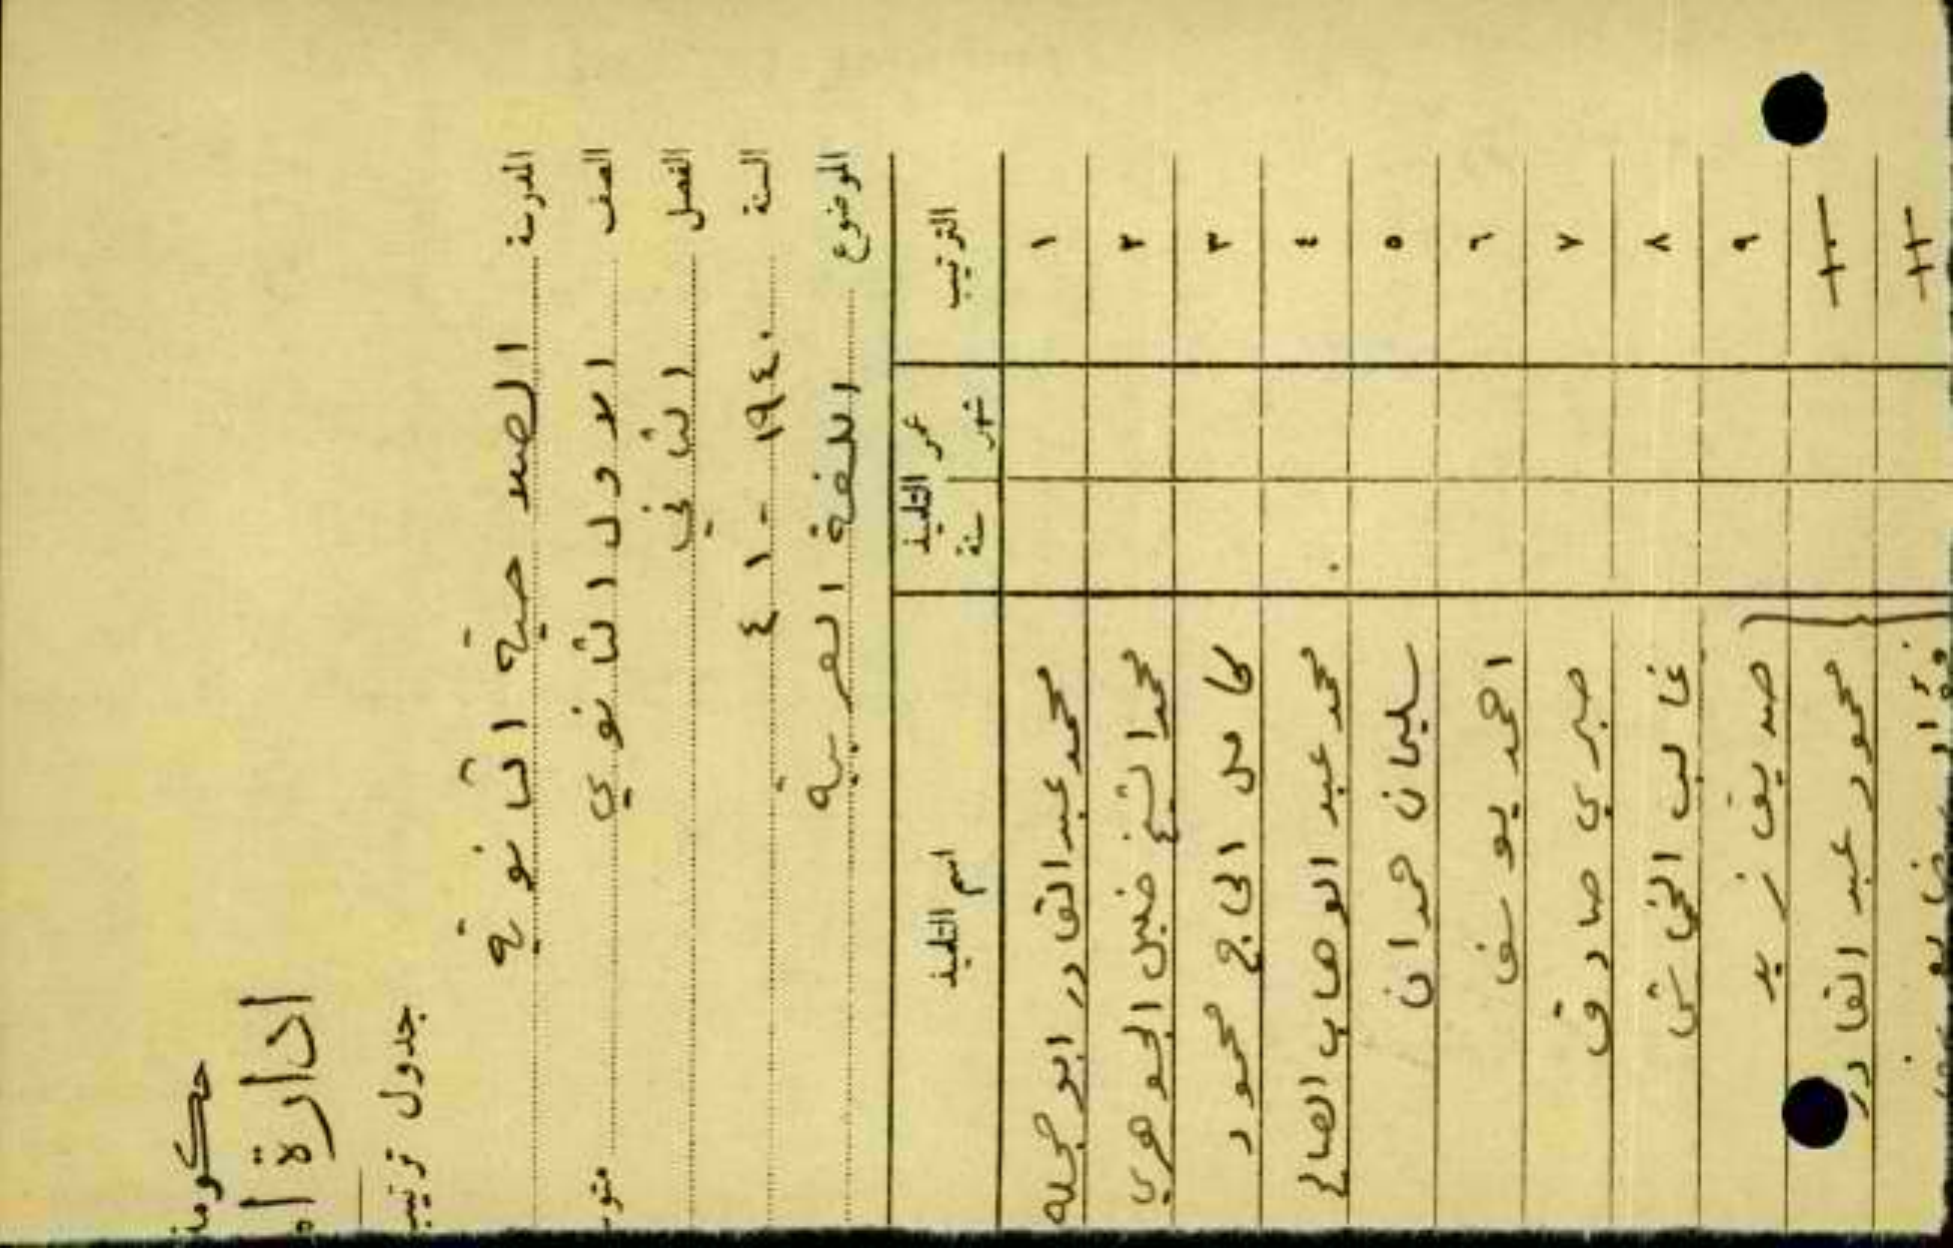 حكومة
ادارة ا
جدول ترتيب
المدرسة الصلاحية الثانوية
الصف الاول الثانوي
الفصل الثاني
السنة ١٩٤٠ - ٤١
الموضوع اللغة العربية
الترتيب عمر التلميذ اسم التلميذ
شهر سنة
١ محمد عبد القادر ابو حجله
٢ محمد الشيخ خليل الجوهري
٣ كامل الحاج محمود
٤ محمد عبد الوهاب الصالح
٥ سليمان حمدان
٦ احمد يوسف
٧ صبري صادق
٨ غالب الخماش
٩ صديق زيد
١٠ محمود عبد القادر
١١